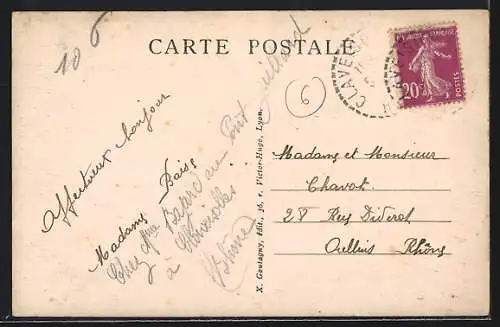 10
CARTE POSTALE
6
CLAVE
RÉPUBLIQUE FRANÇAISE
20c
POSTES
Affectueux bonjour
Madame Baise
Chez Mme au Pont
à
Rhône
X. Goutagny, édit., 36, r. Victor-Hugo, Lyon.
Madame et Monsieur
Chavot
28 Rue Diderot
Oullins Rhône